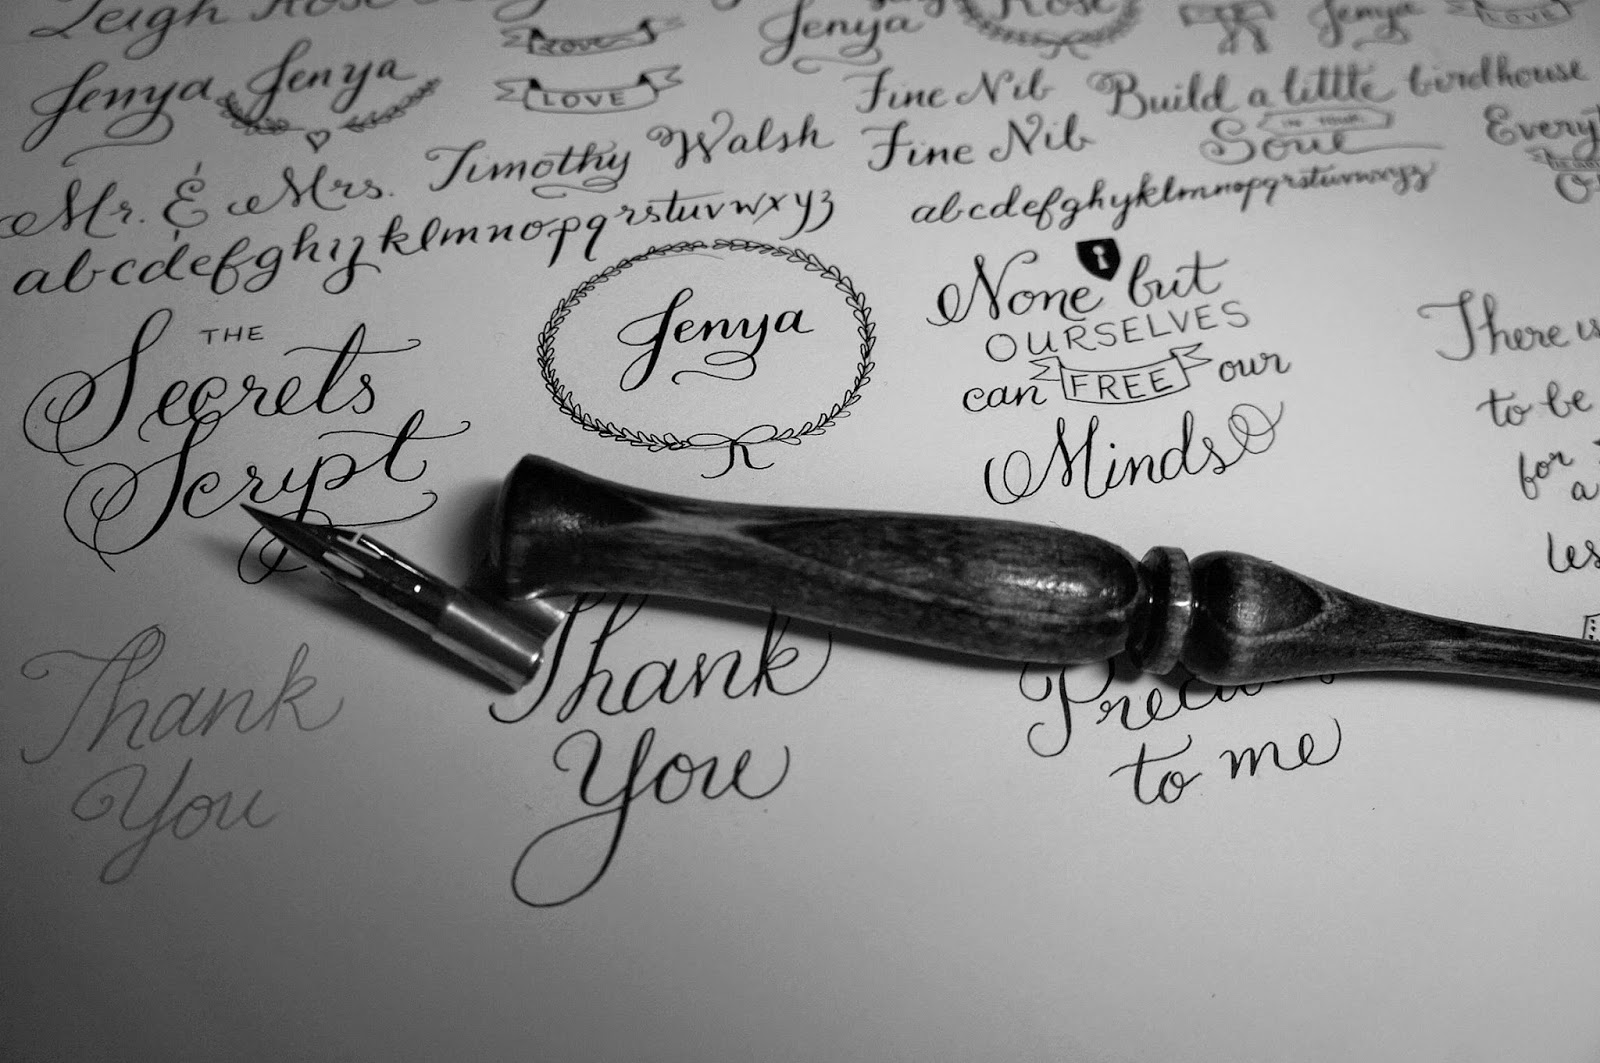 Leigh Rose
Jenya
LOVE
Jenya
LOVE
Jenya Jenya
LOVE
Fine Nib
Build a little birdhouse
IN YOUR
Soul
Mr. & Mrs.
Timothy Walsh
Fine Nib
abcdefghijklmnopqrstuvwxyz
abcdefghyklmnopqrstuvwxyz
THE
Secrets
Script
Jenya
None but
OURSELVES
can FREE our
Minds
There is
to be
for
a
les
Thank
You
Thank
You
to me